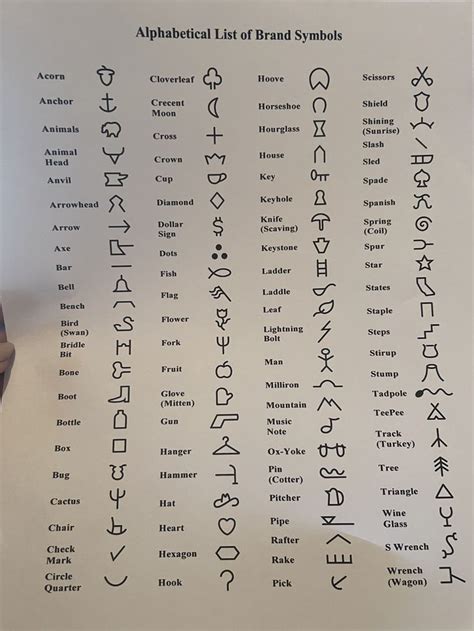 Alphabetical List of Brand Symbols
Acorn
Anchor
Animals
Animal
Head
Anvil
Arrowhead
Arrow
Axe
Bar
Bell
Bench
Bird
(Swan)
Bridle
Bit
Bone
Boot
Bottle
Box
Bug
Cactus
Chair
Check
Mark
Circle
Quarter
Cloverleaf
Crecent
Moon
Cross
Crown
Cup
Diamond
Dollar
Sign
Dots
Fish
Flag
Flower
Fork
Fruit
Glove
(Mitten)
Gun
Hanger
Hammer
Hat
Heart
Hexagon
Hook
Hoove
Horseshoe
Hourglass
House
Key
Keyhole
Knife
(Scaving)
Keystone
Ladder
Laddle
Leaf
Lightning
Bolt
Man
Milliron
Mountain
Music
Note
Ox-Yoke
Pin
(Cotter)
Pitcher
Pipe
Rafter
Rake
Pick
Scissors
Shield
Shining
(Sunrise)
Slash
Sled
Spade
Spanish
Spring
(Coil)
Spur
Star
States
Staple
Steps
Stirup
Stump
Tadpole
TeePee
Track
(Turkey)
Tree
Triangle
Wine
Glass
S Wrench
Wrench
(Wagon)